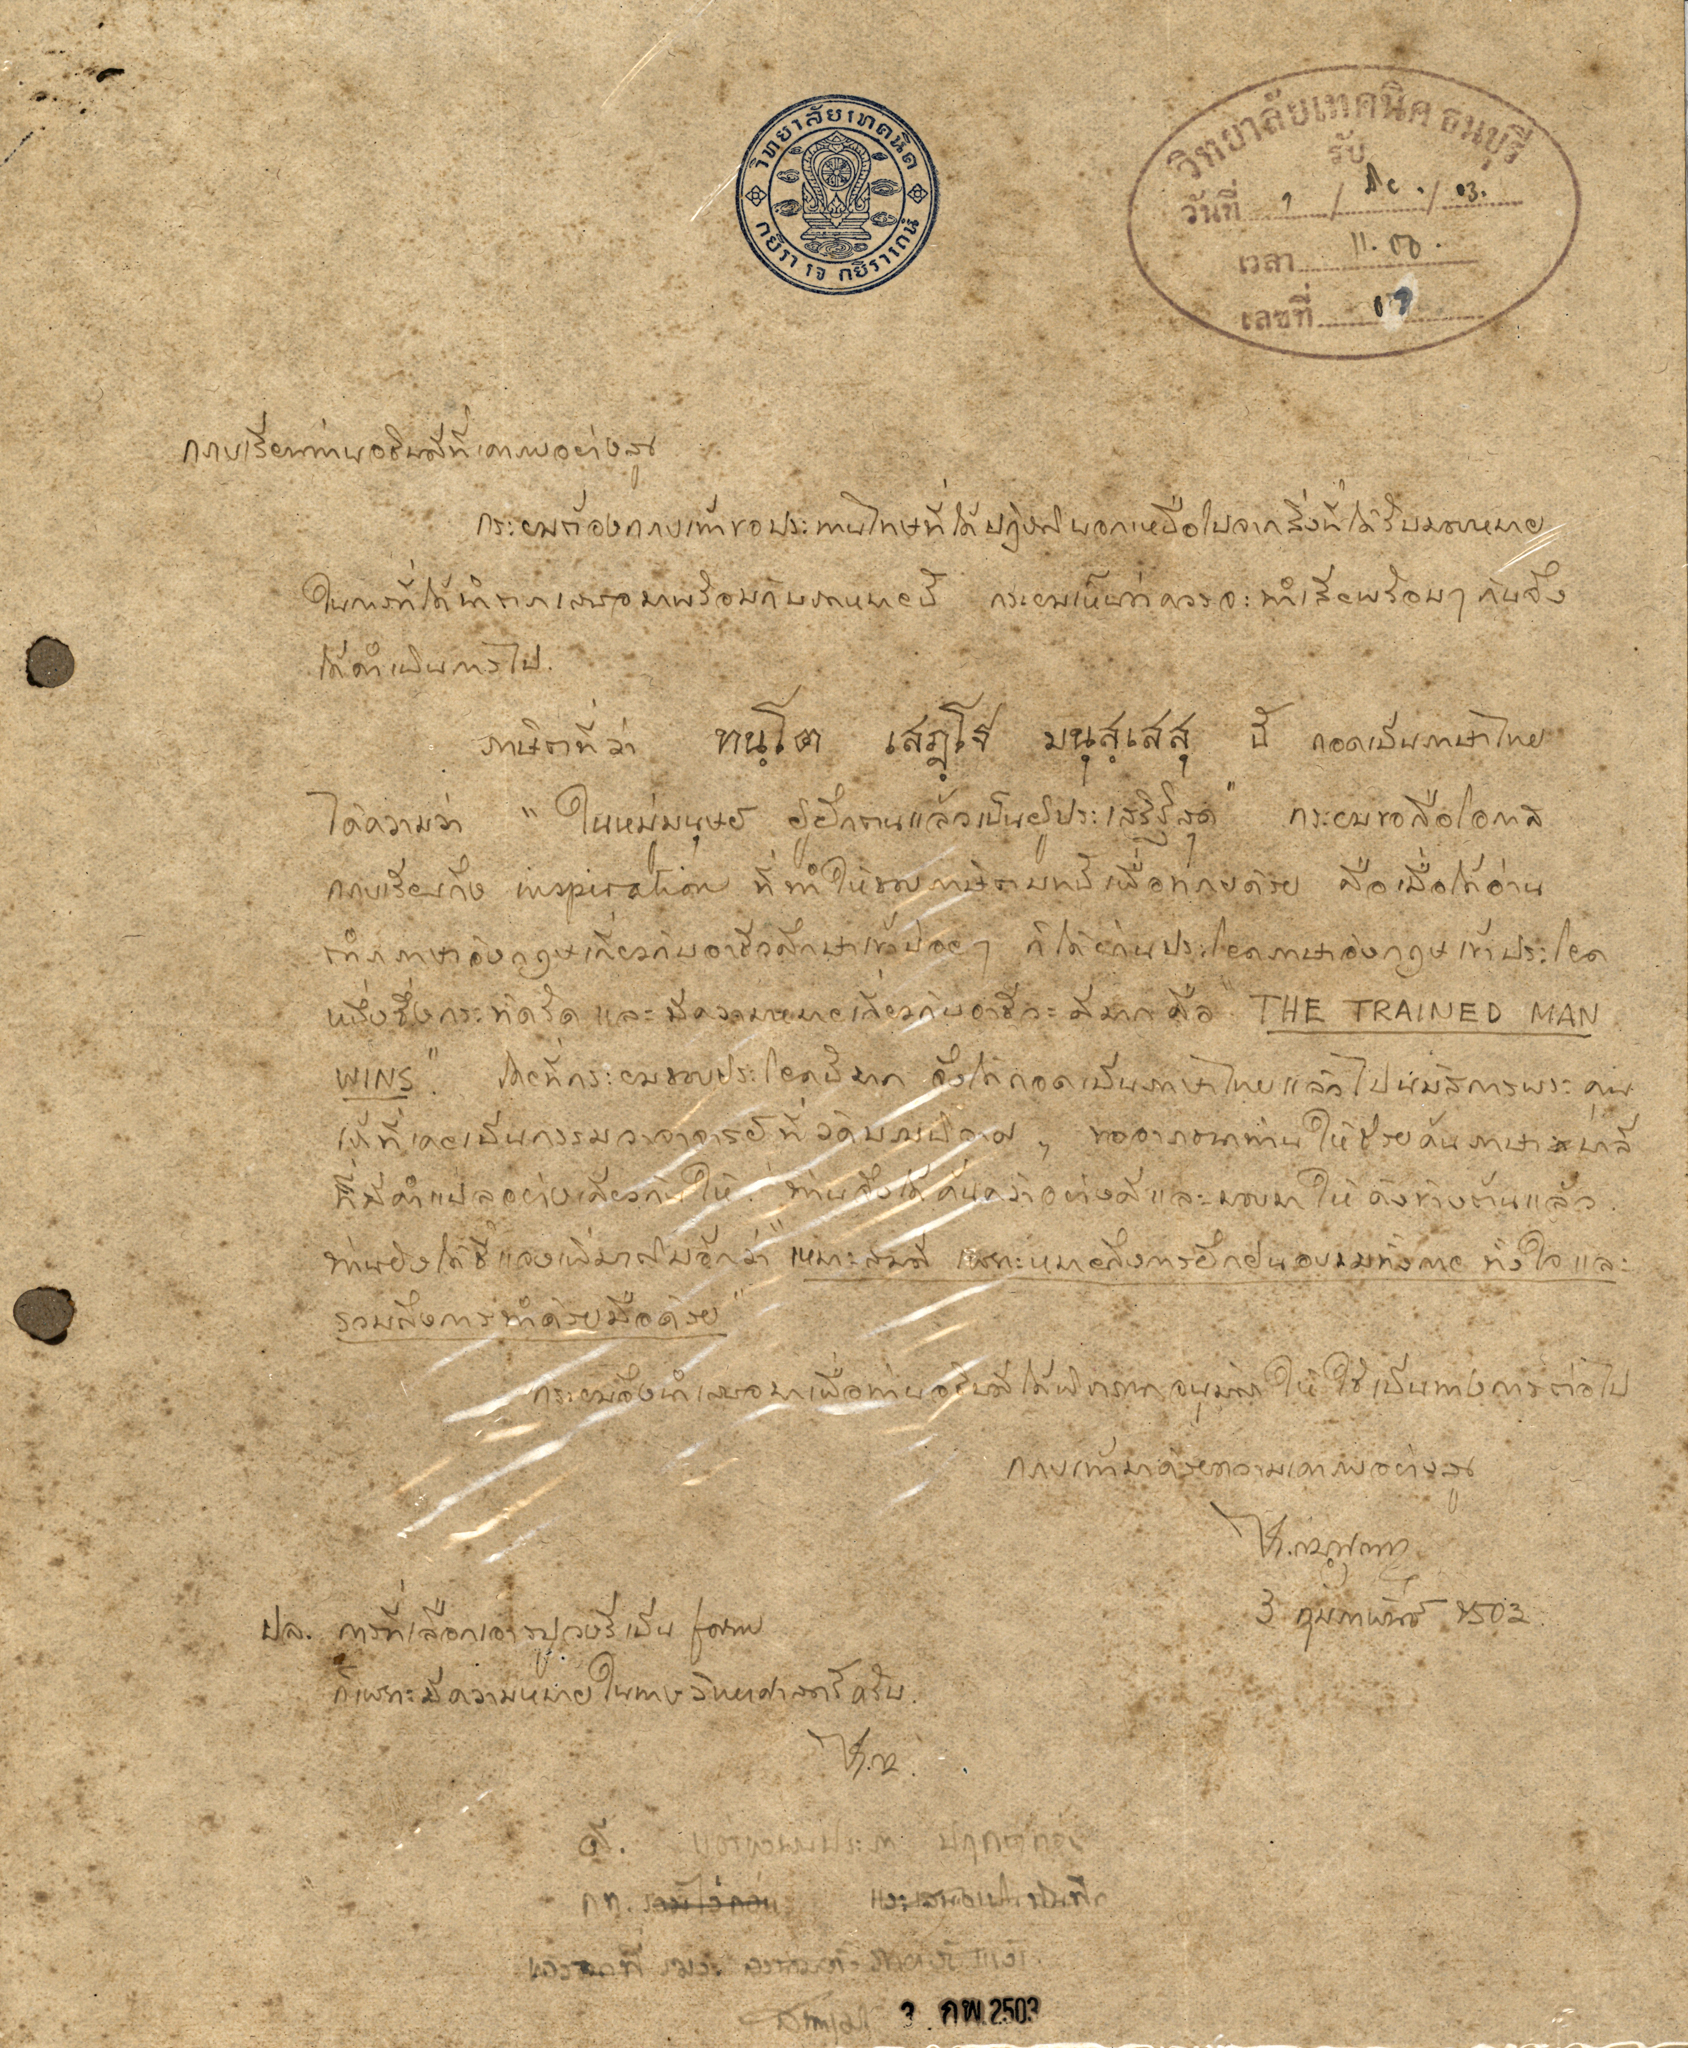 วิทยาลัยเทคนิค
กยิรา เจ กยิราเถนํ
วิทยาลัยเทคนิค ธนบุรี
รับ
วันที่ / /03.
เวลา 11.00.
เลขที่
กราบเรียนท่านอธิบดีที่เคารพอย่างสูง
กระผมต้องกราบเท้าขอประทานโทษที่ได้ปฏิบัตินอกเหนือไปจากสิ่งที่ได้รับมอบหมาย
ในการที่ได้นำตราเสนอมาพร้อมกับ นี้ กระผมเห็นว่าควรจะทำเสียพร้อมๆ กันจึง
ได้ดำเนินการไป.
ภาษิตที่ว่า ทนฺโต เสฏฺโฐ มนุสฺเสสุ นี้ ถอดเป็นภาษาไทย
ได้ความว่า "ในหมู่มนุษย์ ผู้ฝึกตนแล้วเป็นผู้ประเสริฐสุด" กระผมขอถือโอกาส
กราบเรียนถึง inspiration ที่ทำให้ชอบภาษิตบทนี้เพื่อทราบด้วย คือเมื่อได้อ่าน
ตำราภาษาอังกฤษเกี่ยวกับอาชีวศึกษาเข้าบ่อยๆ ก็ได้ผ่านประโยคภาษาอังกฤษเข้าประโยค
หนึ่งซึ่งกระทัดรัด และมีความหมายเกี่ยวกับอาชีวะดีมากคือ "THE TRAINED MAN
WINS". โดยที่กระผมชอบประโยคนี้มาก จึงได้ถอดเป็นภาษาไทยแล้วไปนมัสการพระคุณ
เจ้าที่เคยเป็นกรรมวาจาจารย์ที่วัด , ขออาราธนาท่านให้ช่วยค้นภาษาบาลี
ที่มีคำแปลอย่างเดียวกันให้. ท่านจึงได้ค้นคว้าอย่างดีและมอบมาให้ ดังข้างต้นแล้ว.
ท่านยังได้ชี้แจงเพิ่มเติมอีกว่า "เหมาะสมดี เพราะหมายถึงการฝึกฝนอบรมทั้งกาย ทั้งใจ และ
รวมถึงการทำด้วยมือด้วย"
กระผมจึงนำเสนอมาเพื่อท่านอธิบดีได้พิจารณาอนุมัติให้ใช้เป็นทางการต่อไป
กราบเท้ามาด้วยความเคารพอย่างสูง
3 กุมภาพันธ์ 2503
ปล. การที่เลือกเอารูปวงรีเป็น form
ก็เพราะมีความหมายในทางวิทยาศาสตร์ครับ.
3 กพ 2503